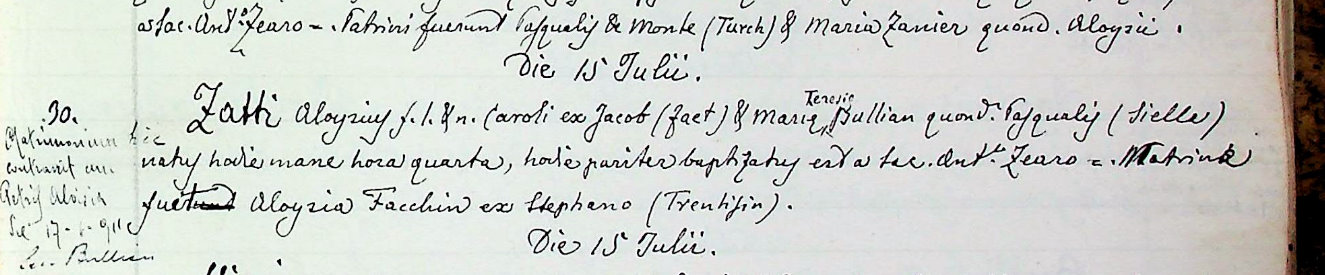 a sac. Ant.º Zearo = . Patrini fuerunt Pasqualis De Monte (Turch) & Maria Zanier quond. Aloysii .
Die 15 Julii .
30.
Zatti Aloysius f. l. & n. Caroli ex Jacob (faet) & Mariæ Teresiæ Bullian quond.m Pasqualis (Sielle)
natus hodie mane hora quarta, hodie pariter baptizatus est a sac. Ant.º Zearo = . Matrina
fuit Aloysia Facchin ex Stephano (Trentisin) .
Matrimonium hic
contraxit cum
Aloisia
die 17-1-911
Bullian
Die 15 Julii .